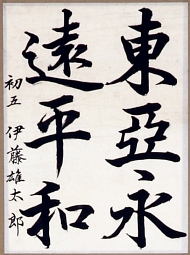 東亞永
遠平和
初五 伊藤雄太郎